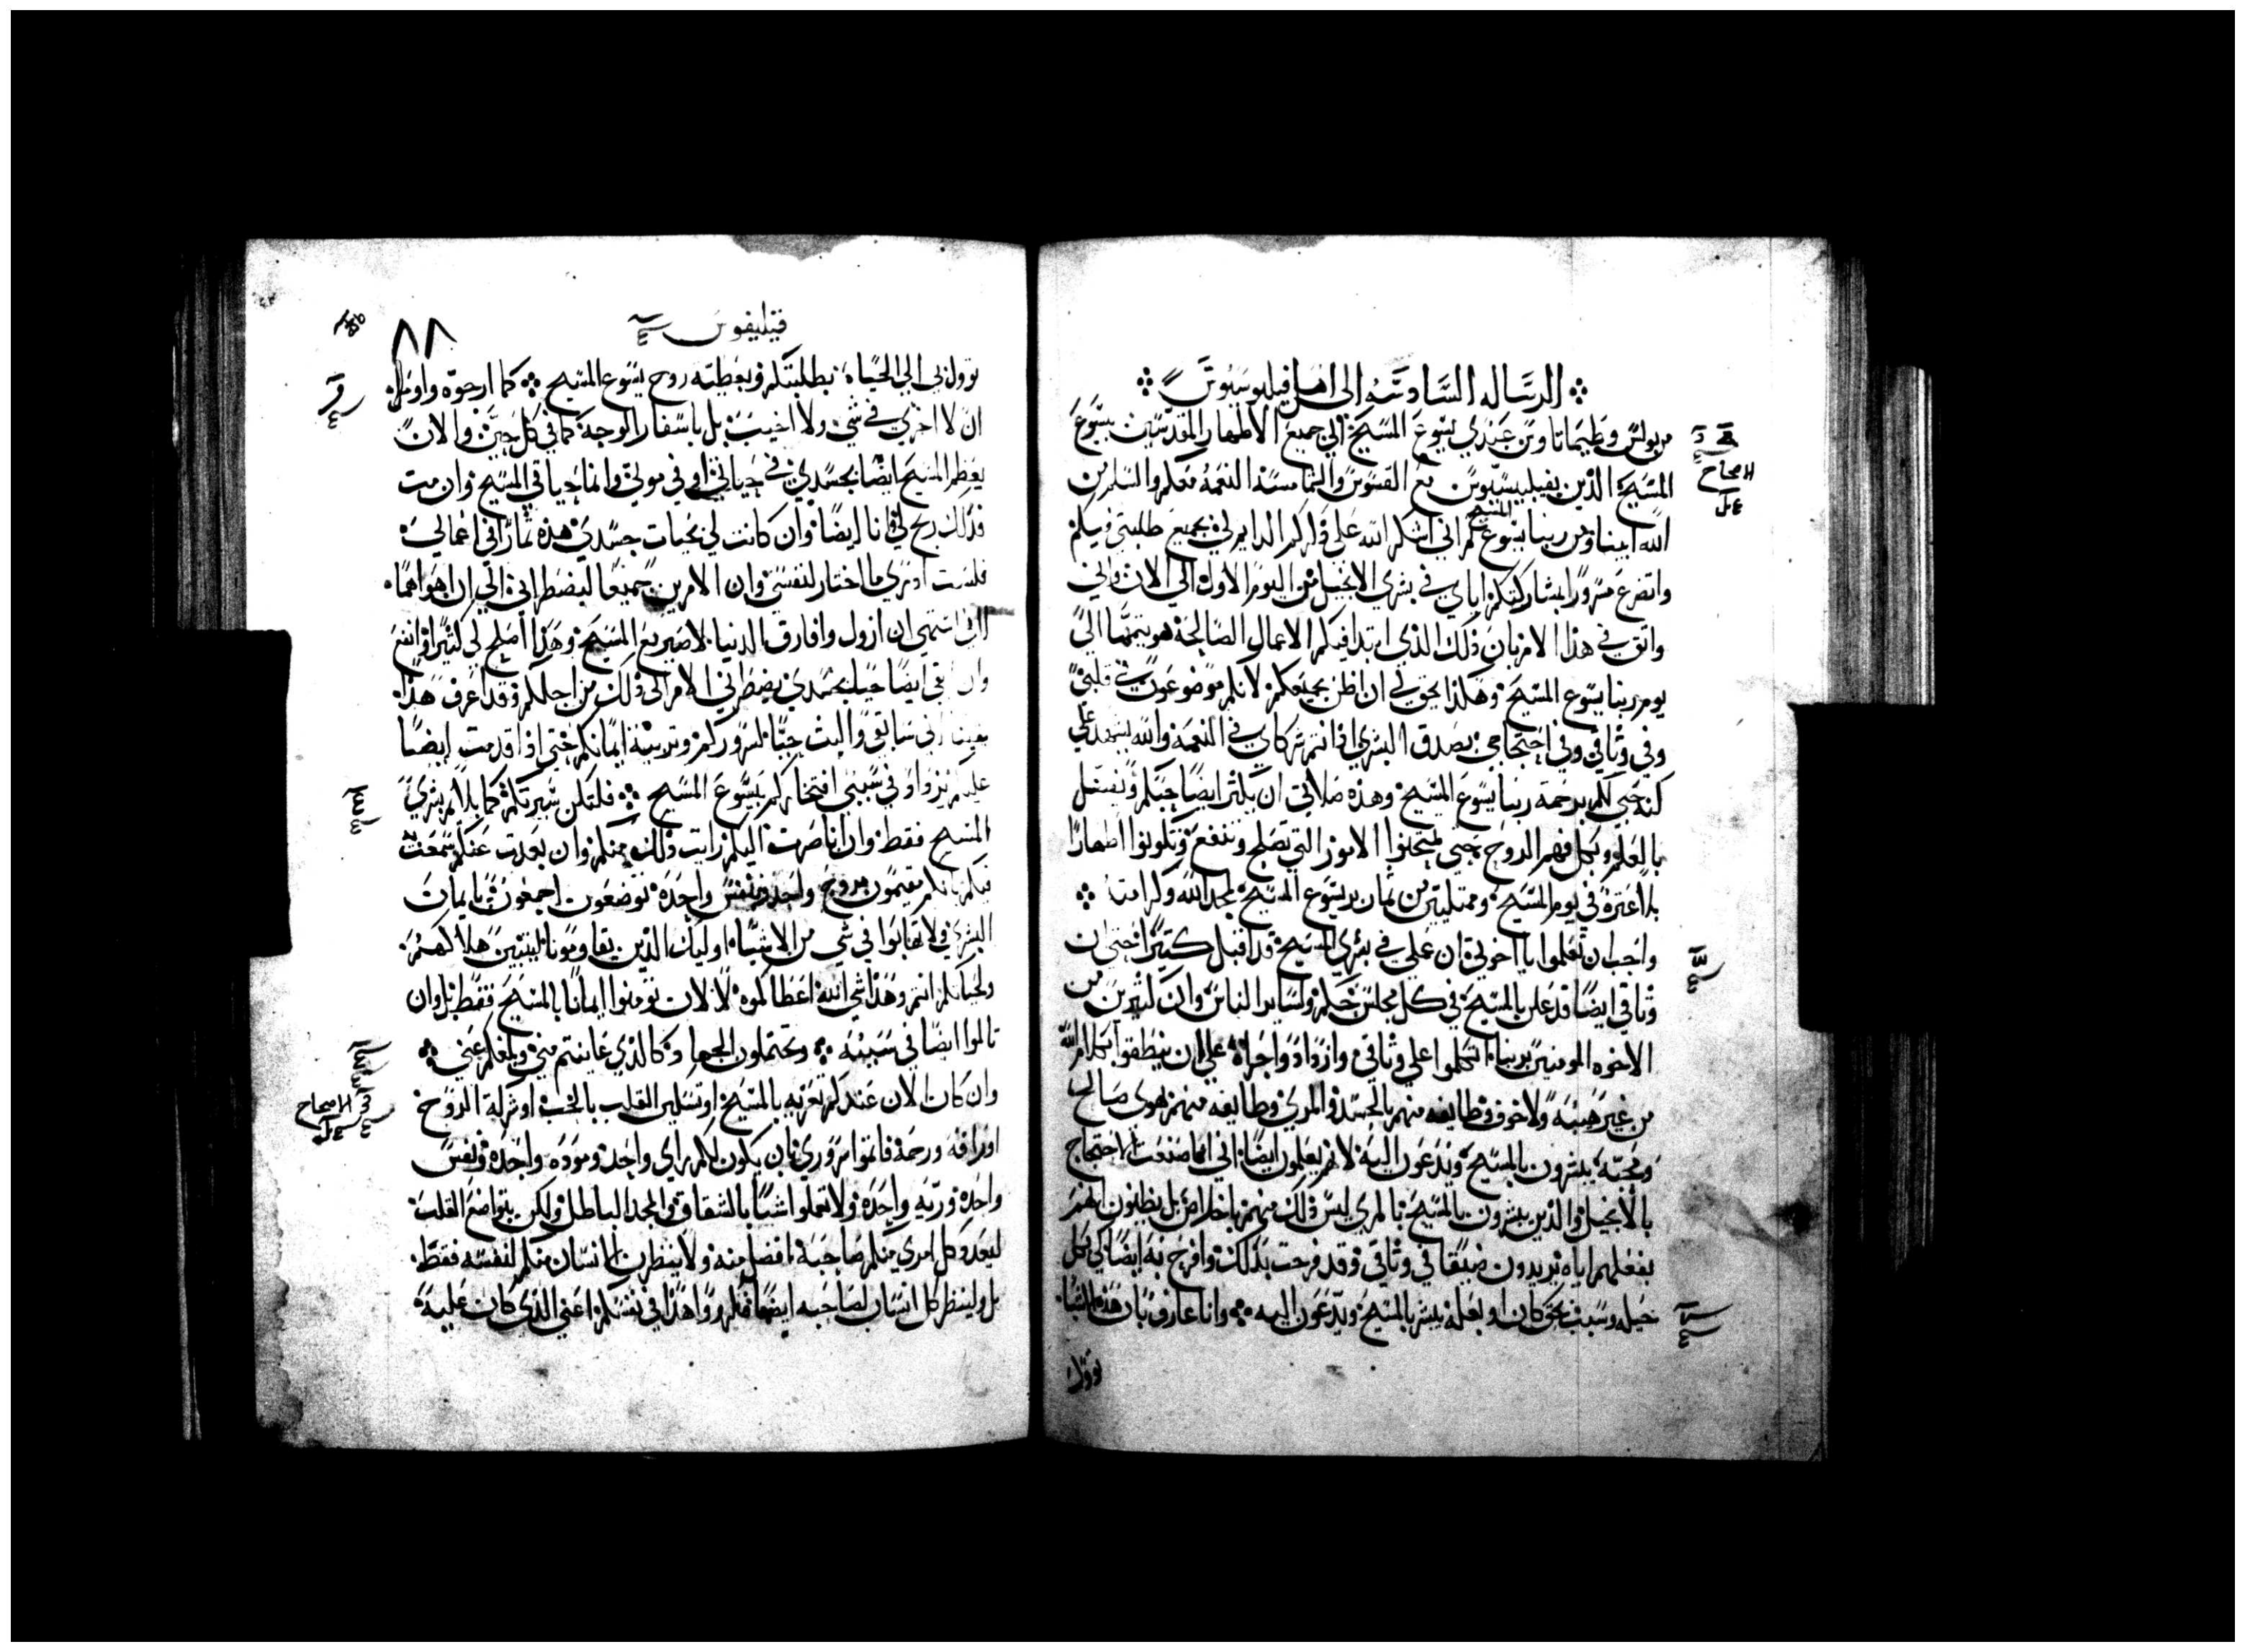 الرساله السادسه الى اهل فيليبوسيوس
من بولس وطيماتاوس عبدي يسوع المسيح الي جميع الاطهار المقدسين بيسوع
الاصحاح
المسيح الذين بفيليبسيوس مع القسوس والشمامسه النعمه معكم والسلم من
الله ابينا ومن ربنا يسوع المسيح ثم اني اشكر الله علي ذكركم الدايم لي بجميع طلبتي فيكم
واتضرع مسرورا بمشاركتكم اياي في بشري الانجيل من اليوم الاول الي الان واني
واثق في هذا الامر بان ذلك الذي ابتدا فيكم الاعمال الصالحه هو يتممها الي
يوم ربنا يسوع المسيح وهكذا يحق لي ان اظن بجميعكم لانكم موضوعون في قلبي
وفي وثاقي وفي احتجاجي بصدق البشري اذ انتم شركاي في النعمه والله يشهد علي
كنه حبي لكم برحمة ربنا يسوع المسيح وهذه صلاتي ان يكثر ايضا حبكم ويفضل
بالعلم وبكل فهم الروح حتي تمتحنوا الامور التي تصلح وتنفع وتكونوا اطهارا
بلا عثره في يوم المسيح وممتليين من ثمار بر يسوع المسيح لمجد الله وكرامته
واحب ان تعلموا يا اخوتي ان عملي في بشري المسيح قد اقبل كثيرا حتي ان
وثاقي ايضا قد علن بالمسيح في كل مجلس حكم ولساير الناس وان كثيرين من
الاخوه المومنين بربنا اتكلوا علي وثاقي وازدادوا جراه علي ان ينطقوا بكلام الله
من غير هيبه ولا خوف وطايفه منهم بالحسد والمري وطايفه منهم بهوي صالح
ومحبه يبشرون بالمسيح ويدعون اليه لانهم يعلمون ايضا اني انما صنعت للاحتجاج
بالانجيل والذين يبشرون بالمسيح بالمري ليس ذلك منهم باخلاص بل يظنون انهم
بفعلهم اياه يزيدون ضيقا في وثاقي وقد فرحت بذلك وافرح به ايضا في كل
حيله وسبب بحق كان او بعله يبشر بالمسيح ويدعون اليه وانا عارف بان هذه الاشيا
توول
فيليفوس
٨٨
توول بي الي الحياه بطلبتكم وبعطيه روح يسوع المسيح كما ارجوه واومل
ان لا اخزي في شي ولا اخيب بل باسفار الوجه كما في كل حين والان
يعظم المسيح ايضا بجسدي في حياتي او في موتي وانما حياتي المسيح وان مت
فذلك ربح لي انا ايضا وان كانت لي بحيات جسدي هذه ثمار في اعمالي
فلست ادري ما اختار لنفسي وان الامرين جميعا ليضطراني الي ان اهواهما
اني اشتهي ان ازول وافارق الدنيا لاصير مع المسيح وهذا اصلح لي كثيرا وانفع
وان ابقي ايضا حيا بجسدي يضطرني الامر الي ذلك من اجلكم وقد اعرف هذا
يقينا اني سابقي والبث حيا لسروركم وتربية ايمانكم حتي اذا قدمت ايضا
عليكم يزداد في سببي افتخاركم بيسوع المسيح فلتكن سيرتكم كما يلايم بشري
المسيح فقط وان انا صرت اليكم رايت ذلك منكم وان بعدت عنكم سمعت
فيكم بانكم مقيمون بروح واحد ونفس واحده توضعون اجمعون بايمان
البشري ولا تهابوا في شي من الاشيا اوليك الذين يقاومونا ليتبين هلاكهم
ولحياتكم انتم وهذا شي الله اعطاكموه لا لان تومنوا ايمانا بالمسيح فقط بل وان
تالموا ايضا في سببه وتحتملون الجهاد كالذي عاينتم مني وبلغكم عني
الاصحاح
وان كان الان عندكم تعزيه بالمسيح او تسلين القلب بالحب او شركة الروح
او رافه ورحمه فاتموا سروري بان يكون لكم راي واحد وموده واحده ونفس
واحده ونيه واحده ولا تعملوا شيا بالشقاق والمجد الباطل ولكن بتواضع القلب
ليعدد كل امري منكم صاحبه افضل منه ولا ينظرن الانسان منكم لنفسه فقط
بل ولينظر كل انسان لصاحبه ايضا فكروا هذا في نفسكم اعني الذي كان عليه